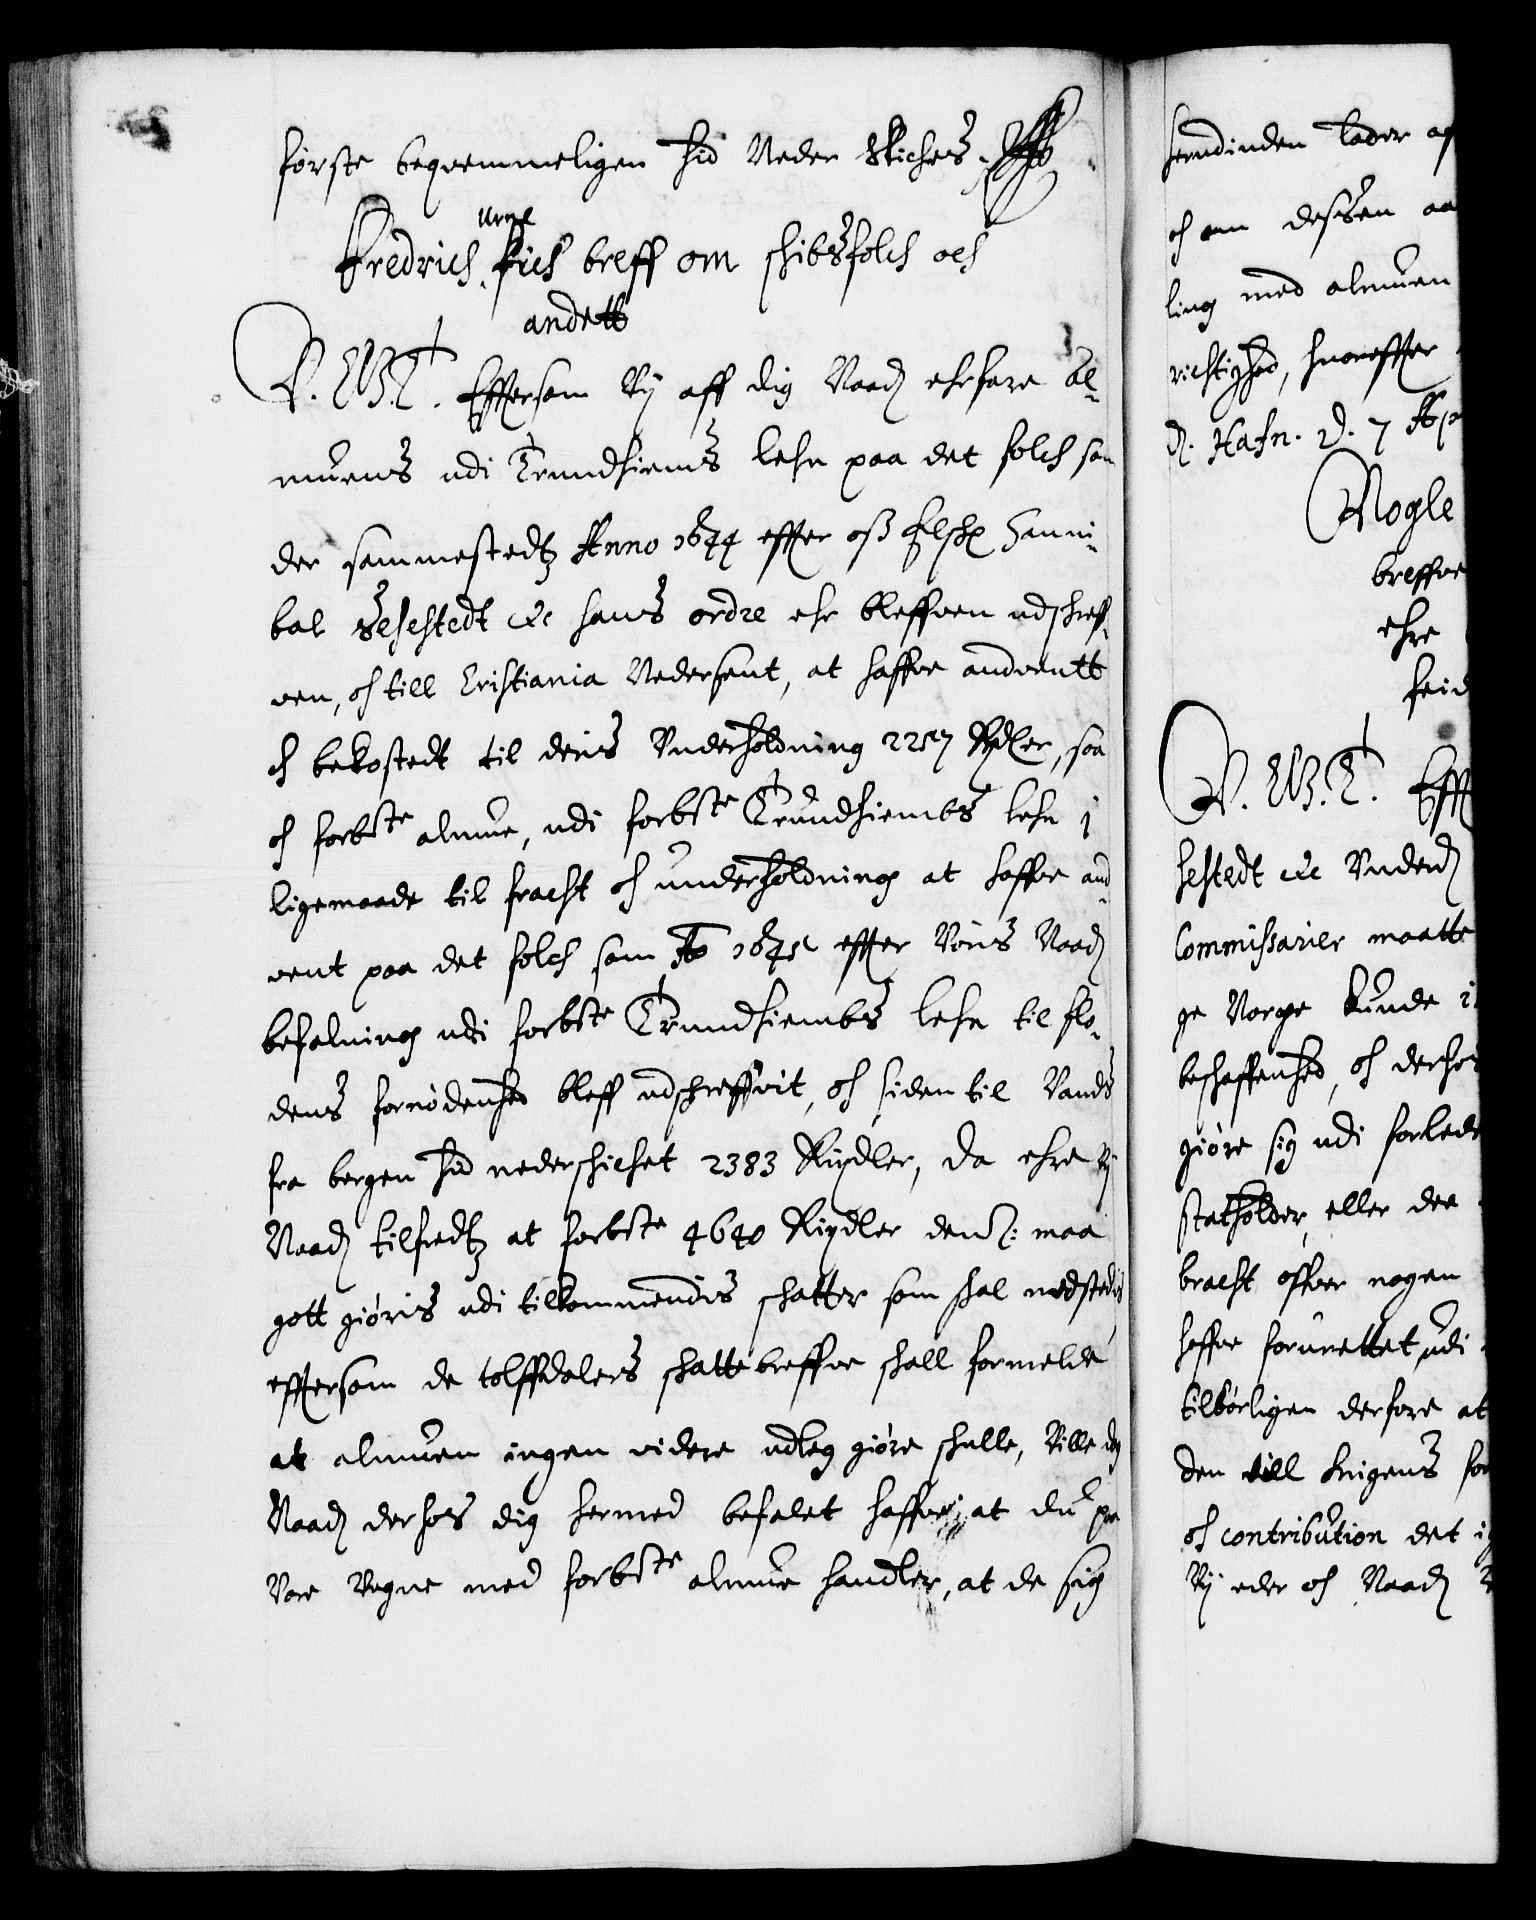 første beqvemmeligen hid Neder Skiches.
Urne
Fredrich fich breff om schibsfolch och
andett
V. G. T. Effersom Vy aff dig Naad. erfare Al-
muens udi Trundhiems lehn paa det folch som
der sammestedtz Anno 1644 effter oss Elsch. Hanni-
bal Sehestedt etc hans ordre ehr bleffven udschreff-
ven, och till Cristiania Nedersent, at haffve andventt
och bekostedt til deris Underholdning 2257 Rdler, saa
och forbete almue, udi forbete Trundhiembs lehn i
ligemaade til fracht och underholdning at haffve and-
vent paa det folch som Ao 1645 effter Voris Naad.
befalning udi forbete Trundhiembs lehn til flo-
dens fornødenhed bleff udschreffvit, och siden til Vands
fra bergen hid nederschichet 2383 Rixdler, da ehre Vy
Naad. tilfredtz at forbete 4640 Rixdler denn: maa
gott giøris udi tilkommendis schatter som schal nedstedis
effersom de tolffdalers schattebreffve schall formelde
at almuen ingen videre udleg giøre schulle, Ville og
Naad. derhos dig hermed befalet haffve, at du paa
Vore Vegne med forbete almue handler, at de sig
herudinden lader
och om dessen
ling med almuen
richtighed, hvoreffter
D. Hafn. d. 7
Nogle
breffve
ehre
feid
V. G. T. Eff
hestedt etc Underd.
Commissarier maatte
ge Norge kunde
beschaffenhed, och derhos
giøre sig udi forlede
statholder, eller dee
bracht offver nogen
haffve forurettet udi
tilbørligen derfore at
den till krigens for
och contribution det
Vy eder och Naad.